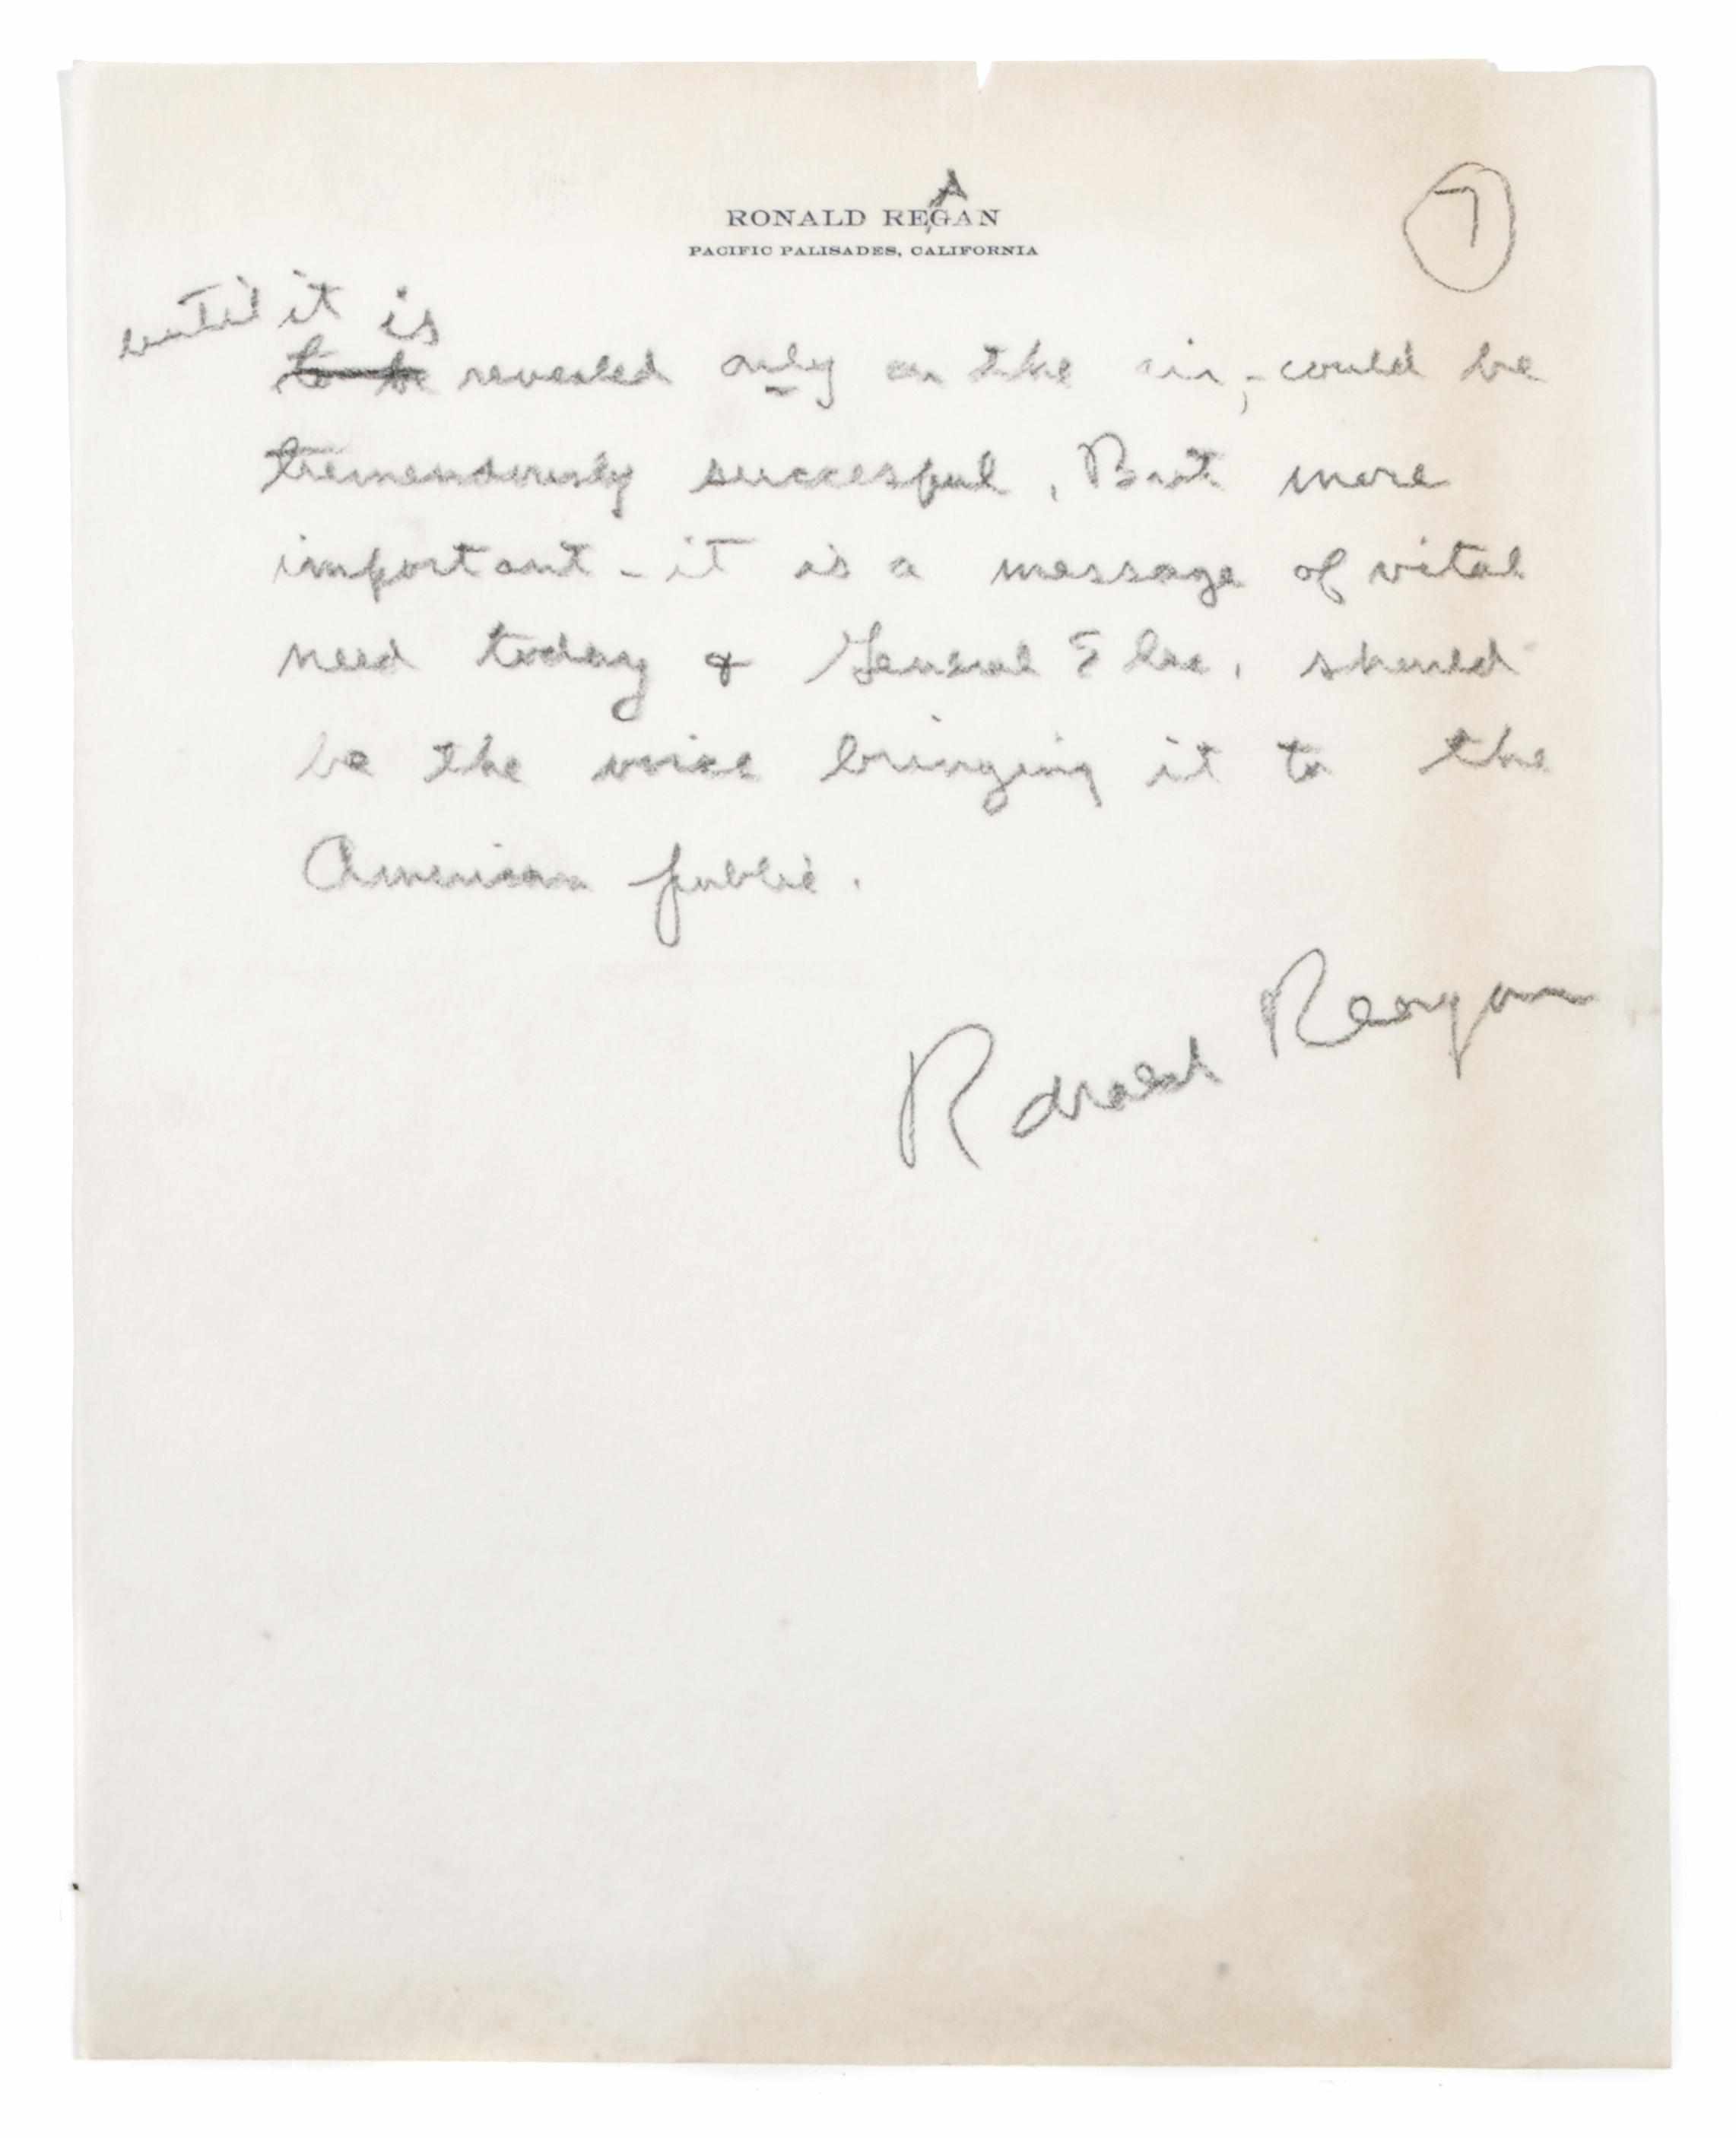 A
RONALD REGAN
PACIFIC PALISADES, CALIFORNIA
7
until it is
to be revealed only on the air, - could be
tremendously successful. But more
important - it is a message of vital
need today & General Elec. should
be the voice bringing it to the
American public.
Ronald Reagan